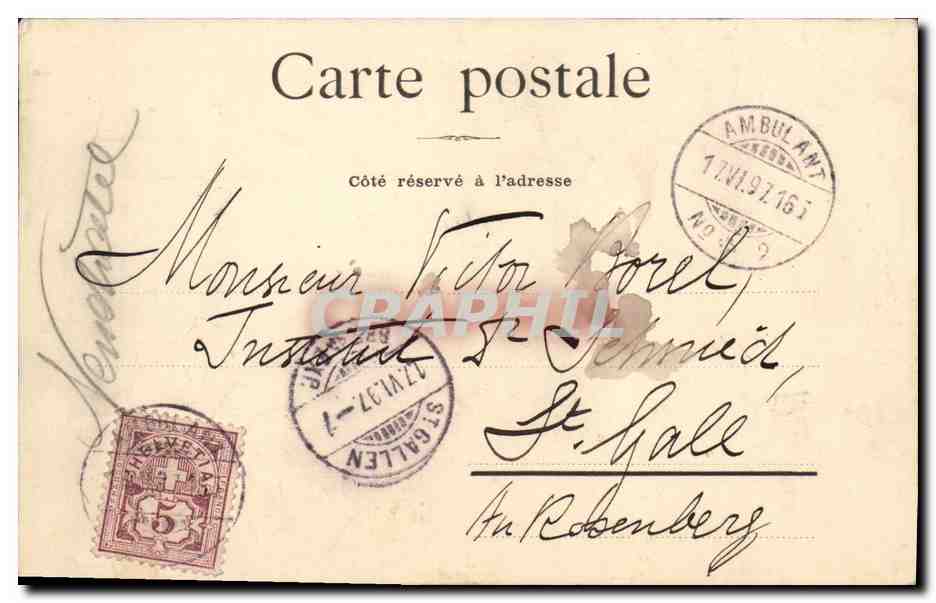 Carte postale
Côté réservé à l'adresse
AMBULANT
17.VI.97.16
No
Neuchâtel
Monsieur Victor Borel,
CRAPHIL
Institut Dr Schmid,
17.VI.97.-7
ST. GALLEN
St. Gall
Au Rosenberg
HELVETIA
5